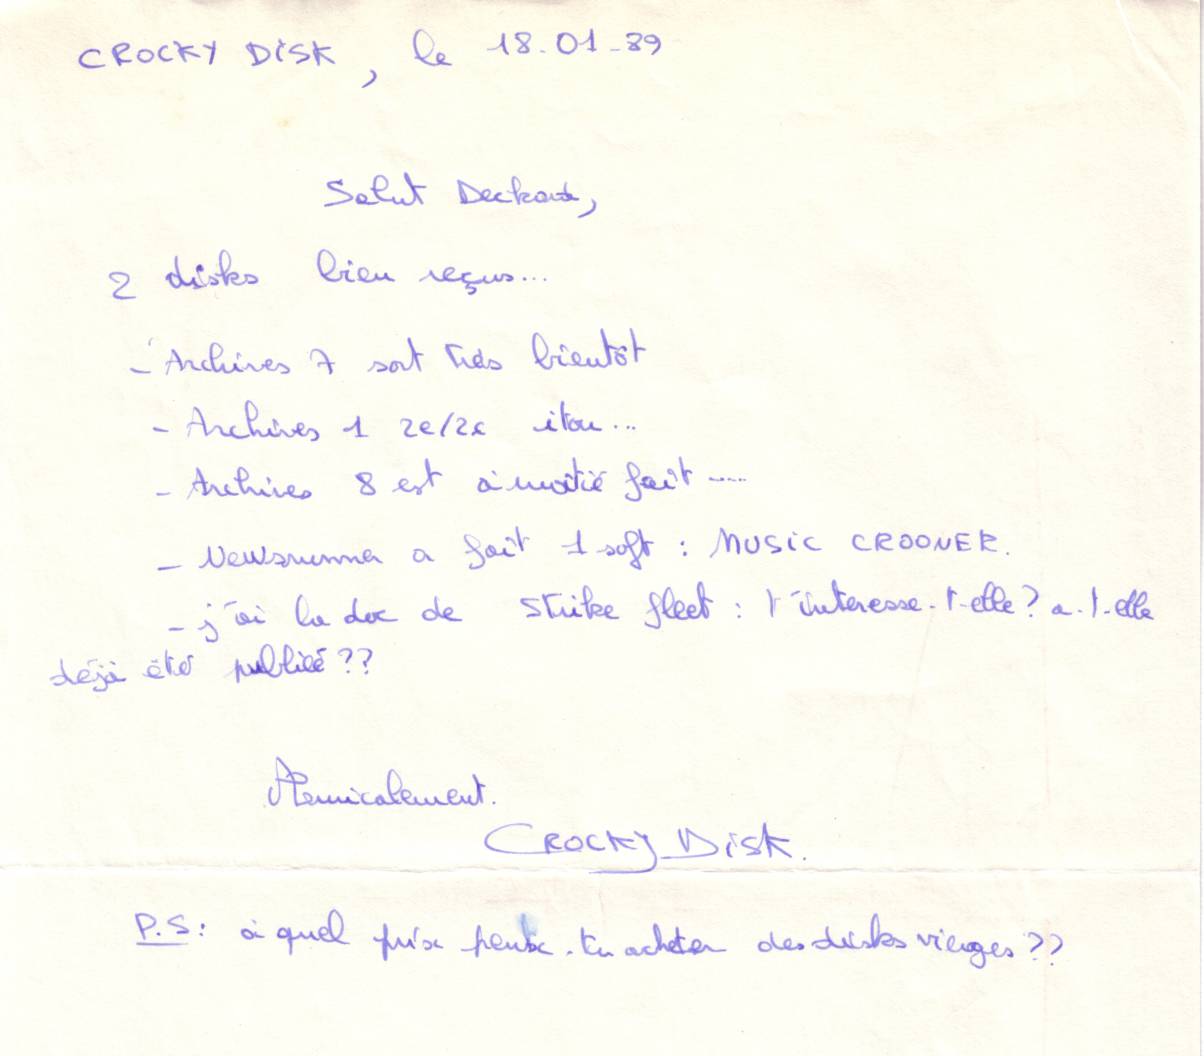 CROCKY DISK, le 18-01-89
Salut Deckard,
2 disks bien reçus...
- Archives 7 sort très bientôt
- Archives 1 2e/2c itou...
- Archives 8 est à moitié fait .....
- Newsrunner a fait 1 soft : MUSIC CROONER.
- j'ai la doc de Strike fleet : t'interesse-t-elle ? a-t-elle
déjà été publiée ??
Amicalement.
CROCKY DISK.
P.S : à quel prix peux-tu acheter des disks vierges ??